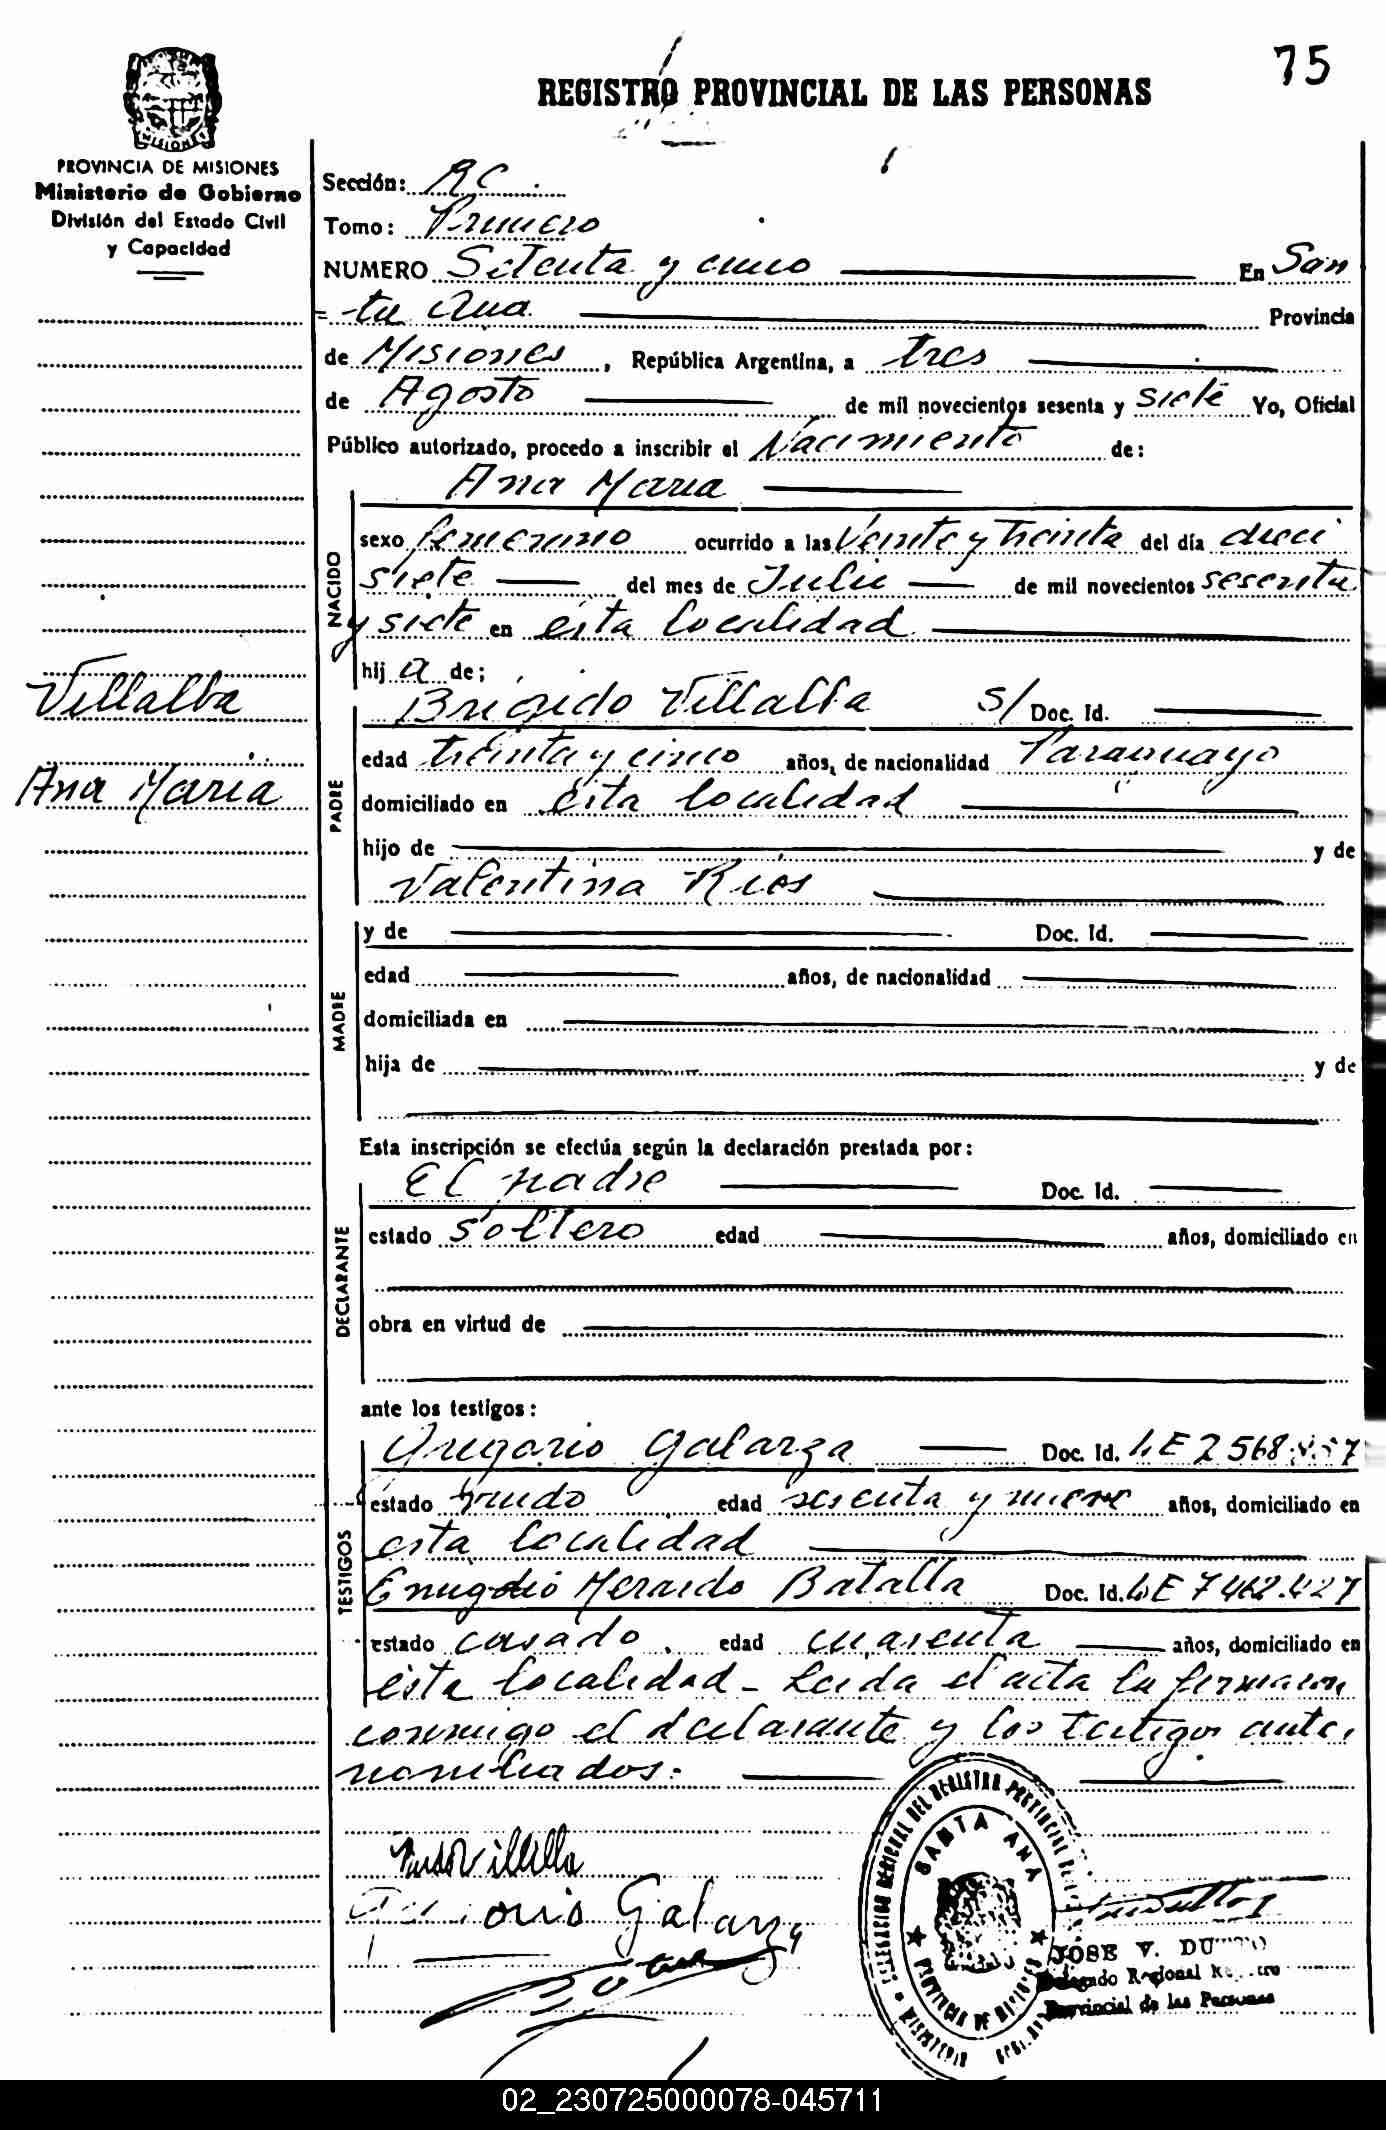 75
REGISTRO PROVINCIAL DE LAS PERSONAS
PROVINCIA DE MISIONES
Ministerio de Gobierno
División del Estado Civil
y Capacidad
Sección: RC.
Tomo: Primero
NUMERO Setenta y cinco En San
ta Ana Provincia
de Misiones, República Argentina, a tres
de Agosto de mil novecientos sesenta y siete Yo, Oficial
Público autorizado, procedo a inscribir el Nacimiento de:
Ana Maria
NACIDO
sexo femenino ocurrido a las Veinte y Treinta del día dieci
siete del mes de Julio de mil novecientos sesenta
y siete en ésta localidad
hij a de;
Villalba
Ana Maria
PADRE
Brigido Villalba s/ Doc. Id.
edad treinta y cinco años, de nacionalidad Paraguayo
domiciliado en ésta localidad
hijo de y de
Valentina Rios
MADRE
y de Doc. Id.
edad años, de nacionalidad
domiciliada en
hija de y de
Esta inscripción se efectúa según la declaración prestada por:
DECLARANTE
El padre Doc. Id.
estado soltero edad años, domiciliado en
obra en virtud de
ante los testigos:
TESTIGOS
Gregorio Galarza Doc. Id. LE 2568
estado viudo edad sesenta y nueve años, domiciliado en
esta localidad
Batalla Doc. Id. LE 7462.427
estado casado. edad cuarenta años, domiciliado en
ésta localidad - Leida el acta la firman
conmigo el declarante y los testigos ante,
nombrados.-
Villalba
Galarza
DELEGACION REGIONAL DEL REGISTRO PROVINCIAL DE LAS
SANTA ANA
PROVINCIA DE MISIONES
JOSE V. DUTTO
Delegado Regional Registro
Provincial de las Personas
02_230725000078-045711